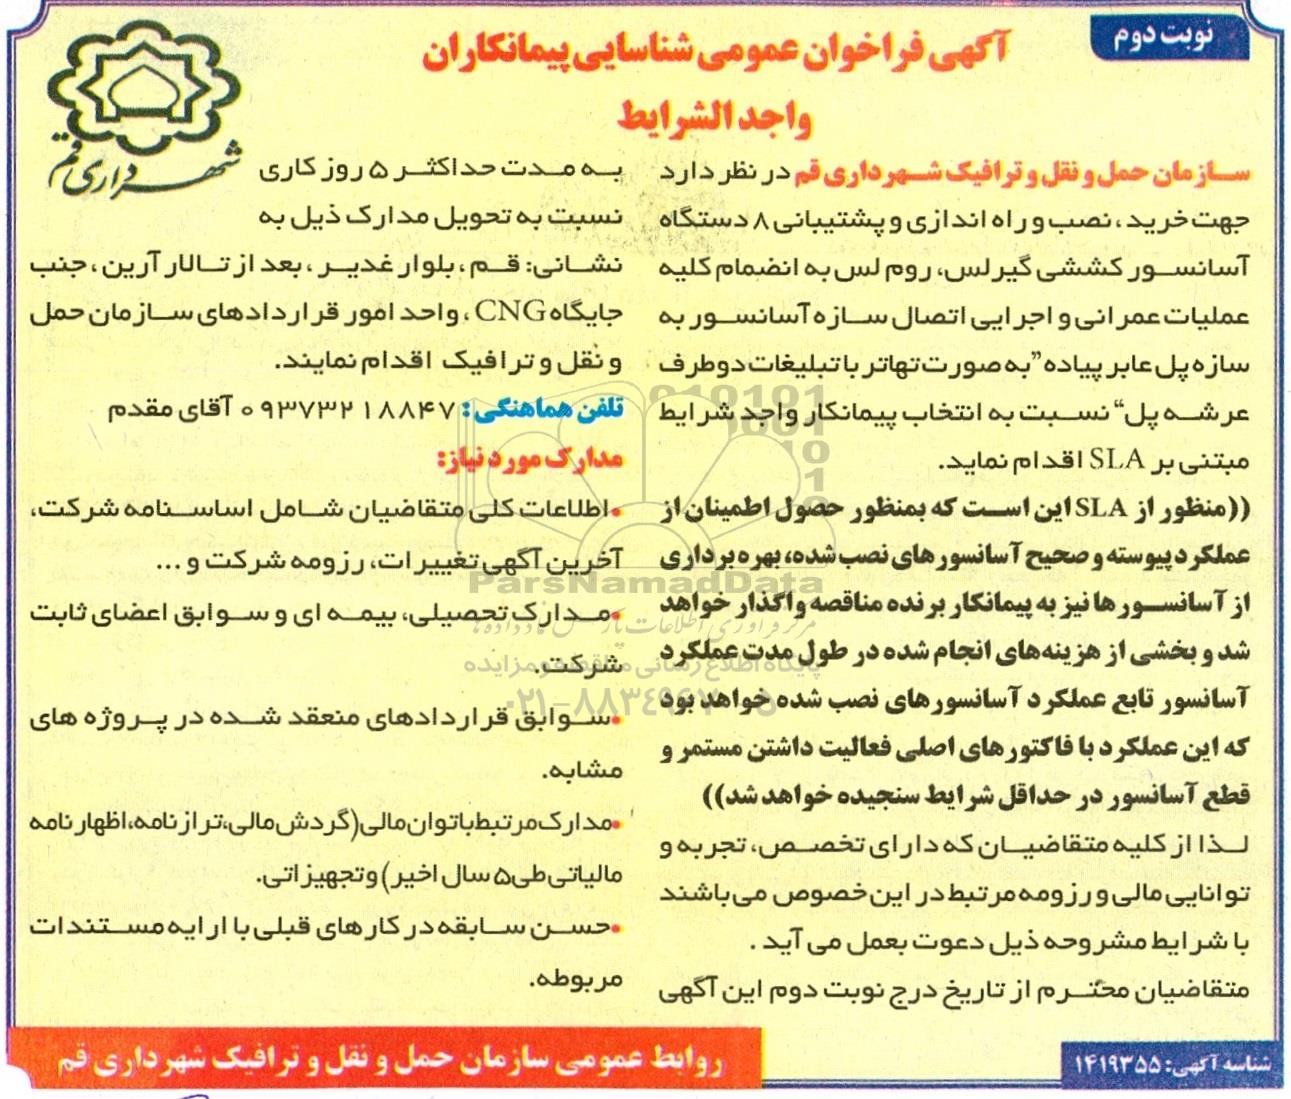 نوبت دوم
آگهی فراخوان عمومی شناسایی پیمانکاران
واجد الشرایط
شهرداری قم
سازمان حمل و نقل و ترافیک شهرداری قم در نظر دارد
جهت خرید ، نصب و راه اندازی و پشتیبانی ۸ دستگاه
آسانسور کششی گیرلس، روم لس به انضمام کلیه
عملیات عمرانی و اجرایی اتصال سازه آسانسور به
سازه پل عابر پیاده "به صورت تهاتر با تبلیغات دو طرف
عرشه پل" نسبت به انتخاب پیمانکار واجد شرایط
مبتنی بر SLA اقدام نماید.
((منظور از SLA این است که بمنظور حصول اطمینان از
عملکرد پیوسته و صحیح آسانسورهای نصب شده، بهره برداری
از آسانسورها نیز به پیمانکار برنده مناقصه واگذار خواهد
شد و بخشی از هزینه‌های انجام شده در طول مدت عملکرد
آسانسور تابع عملکرد آسانسورهای نصب شده خواهد بود
که این عملکرد با فاکتورهای اصلی فعالیت داشتن مستمر و
قطع آسانسور در حداقل شرایط سنجیده خواهد شد))
لذا از کلیه متقاضیان که دارای تخصص، تجربه و
توانایی مالی و رزومه مرتبط در این خصوص می‌باشند
با شرایط مشروحه ذیل دعوت بعمل می آید .
متقاضیان محترم از تاریخ درج نوبت دوم این آگهی
به مدت حداکثر ۵ روز کاری
نسبت به تحویل مدارک ذیل به
نشانی: قم ، بلوار غدیر ، بعد از تالار آرین ، جنب
جایگاه CNG ، واحد امور قراردادهای سازمان حمل
و نقل و ترافیک اقدام نمایند.
تلفن هماهنگی: ۰۹۳۷۳۲۱۸۸۴۷ آقای مقدم
مدارک مورد نیاز:
•اطلاعات کلی متقاضیان شامل اساسنامه شرکت،
آخرین آگهی تغییرات، رزومه شرکت و ...
•مدارک تحصیلی، بیمه ای و سوابق اعضای ثابت
شرکت.
•سوابق قراردادهای منعقد شده در پروژه های
مشابه.
•مدارک مرتبط با توان مالی (گردش مالی، ترازنامه، اظهارنامه
مالیاتی طی ۵ سال اخیر) و تجهیزاتی.
•حسن سابقه در کارهای قبلی با ارایه مستندات
مربوطه.
ParsNamadData
پایگاه اطلاع رسانی مناقصه و مزایده
روابط عمومی سازمان حمل و نقل و ترافیک شهرداری قم
شناسه آگهی: ۱۴۱۹۳۵۵